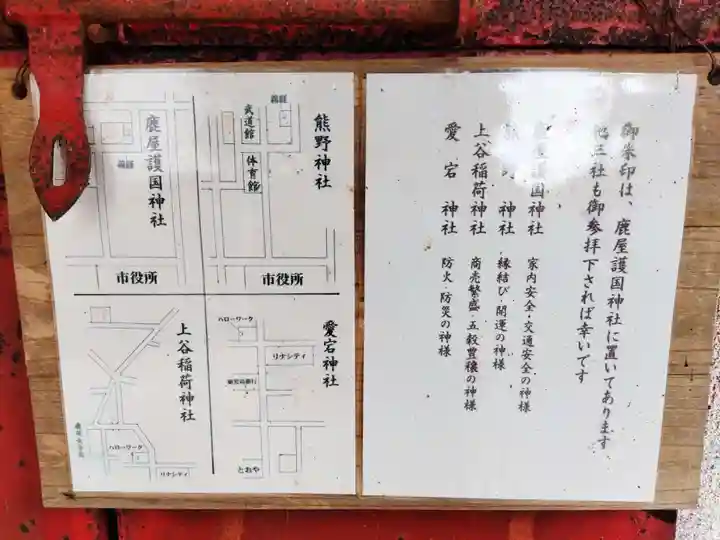 御朱印は、鹿屋護国神社に置いてあります
他三社も御参拝下されば幸いです
鹿屋護国神社 家内安全・交通安全の神様
神社 縁結び・開運の神様
上谷稲荷神社 商売繁盛・五穀豊穣の神様
愛宕 神社 防火・防災の神様
熊野神社
武道館
体育館
市役所
鹿屋護国神社
市役所
愛宕神社
ハローワーク
リナシティ
鹿児島銀行
とおや
上谷稲荷神社
ハローワーク
リナシティ